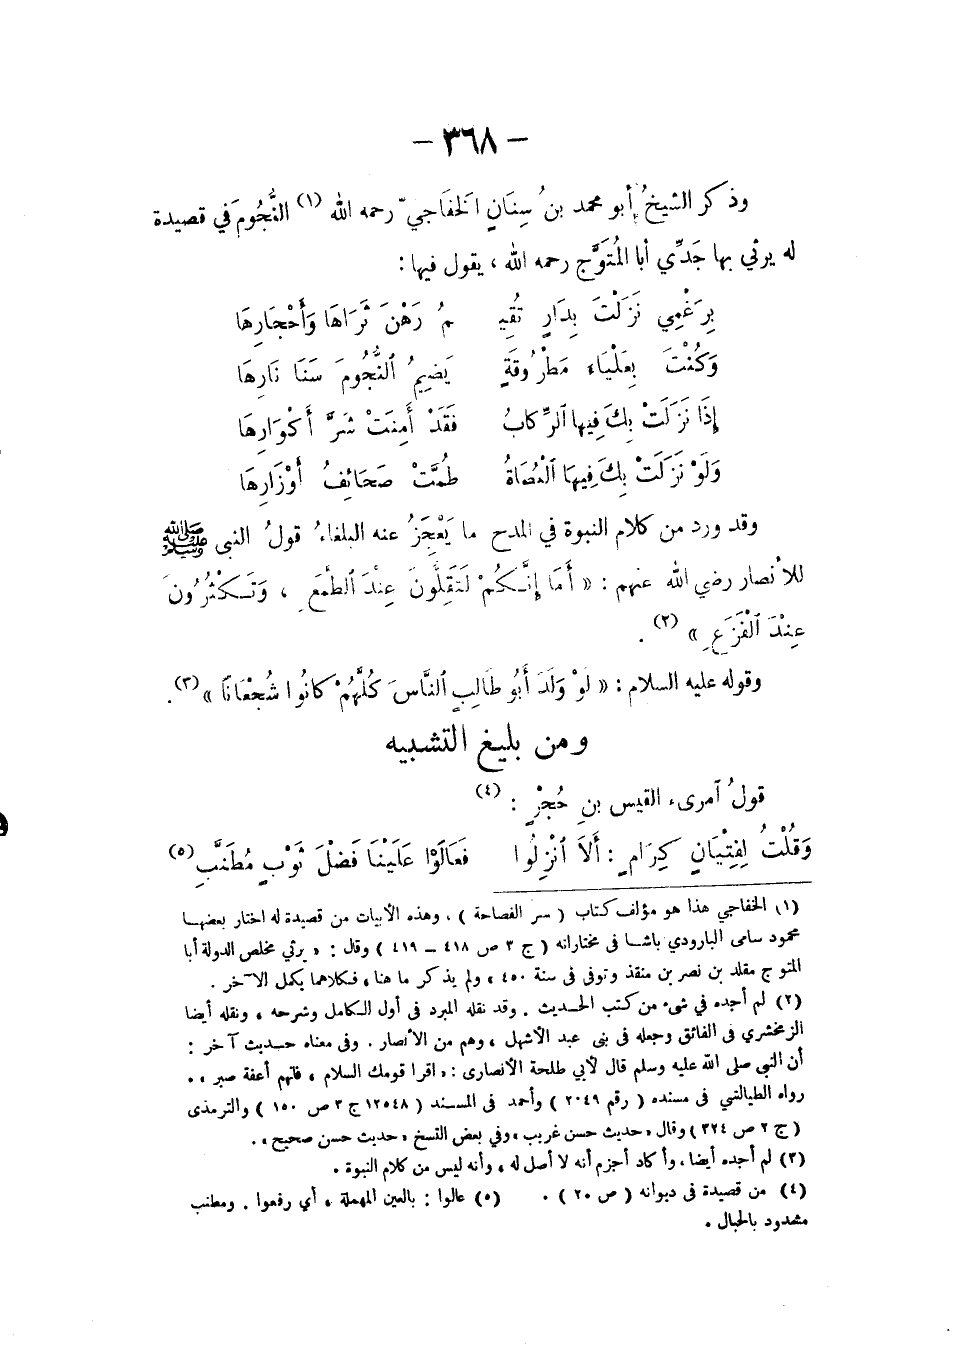 — ٣٦٨ —
وذكر الشيخُ أبو محمد بنُ سِنَانٍ الخفَاجيّ رحمه الله (١) النُّجُومَ في قصيدة
له يرثي بها جَدِّي أبا المُتَوَّج رحمه الله ، يقول فيها :
بِرَغْمِي نَزَلْتَ بِدَارٍ تُقِيـ مُ رَهْنَ ثَرَاهَا وَأَحْجَارِهَا
وَكُنْتَ بِعَلْيَاءَ مَطْرُوقَةٍ يَضِيمُ ٱلنُّجُومَ سَنَا نَارِهَا
إِذَا نَزَلَتْ بِكَ فِيها ٱلرِّكابُ فَقَدْ أَمِنَتْ شَرَّ أَكْوَارِهَا
وَلَوْ نَزَلَتْ بِكَ فِيهَا ٱلْعُصَاةُ طُمَّتْ صَحَائِفُ أَوْزَارِهَا
وقد ورد من كلام النبوة في المدح ما يَعْجَِزُ عنه البلغاءُ قولُ النبى ﷺ
للأنصار رضي الله عنهم : « أَمَا إِنَّكُمْ لَتَقِلُّونَ عِنْدَ ٱلطَّمَعِ ، وَتَكْثُرُونَ
عِنْدَ ٱلْفَزَعِ » (٢) .
وقوله عليه السلام : « لَوْ وَلَدَ أَبُو طَالِبٍ ٱلنَّاسَ كُلَّهُمْ كانُوا شُجْعَانًا » (٣) .
ومن بليغ التشبيه
قولُ ٱمرىء القيس بنِ حُجْرٍ (٤) :
وَقُلْتُ لِفِتْيَانٍ كِرَامٍ : أَلاَ ٱنْزِلُوا فَعَالَوْا عَلَيْنَا فَضْلَ ثَوْبٍ مُطَنَّبِ (٥)
(١) الخفاجي هذا هو مؤلف كتاب ( سر الفصاحة ) ، وهذه الأبيات من قصيدة له اختار بعضها
محمود سامى البارودي باشا فى مختاراته ( ج ٣ ص ٤١٨ ـ ٤١٩ ) وقال : « يرثي مخلص الدولة أبا
المتوج مقلد بن نصر بن منقذ وتوفى فى سنة ٤٥٠ » ولم يذكر ما هنا ، فكلاهما يكمل الآخر .
(٢) لم أجده في شىء من كتب الحديث . وقد نقله المبرد فى أول الكامل وشرحه ، ونقله أيضا
الزمخشري فى الفائق وجعله فى بنى عبد الأشهل ، وهم من الأنصار . وفى معناه حديث آخر :
أن النبى صلى الله عليه وسلم قال لأبي طلحة الأنصارى : « اقرا قومك السلام ، فانهم أعفة صبر » .
رواه الطيالسي فى مسنده ( رقم ٢٠٤٩ ) وأحمد فى المسند ( ١٢٥٤٨ ج ٣ ص ١٥٠ ) والترمذى
( ج ٢ ص ٣٢٤ ) وقال « حديث حسن غريب » وفي بعض النسخ « حديث حسن صحيح » .
(٣) لم أجده أيضا ، وأكاد أجزم أنه لا أصل له ، وأنه ليس من كلام النبوة .
(٤) من قصيدة فى ديوانه ( ص ٢٠ ) . (٥) عالوا : بالعين المهملة ، أي رفعوا . ومطنب
مشدود بالحبال .